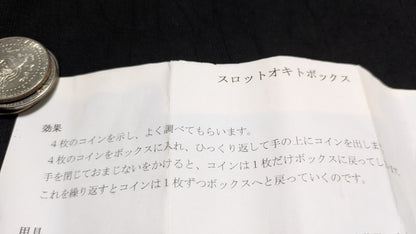 スロットオキトボックス
効果
４枚のコインを示し、よく調べてもらいます。
４枚のコインをボックスに入れ、ひっくり返して手の上にコインを出しま
手を閉じておまじないをかけると、コインは１枚だけボックスに戻ってし
これを繰り返すとコインは１枚ずつボックスへと戻っていくのです。
用具